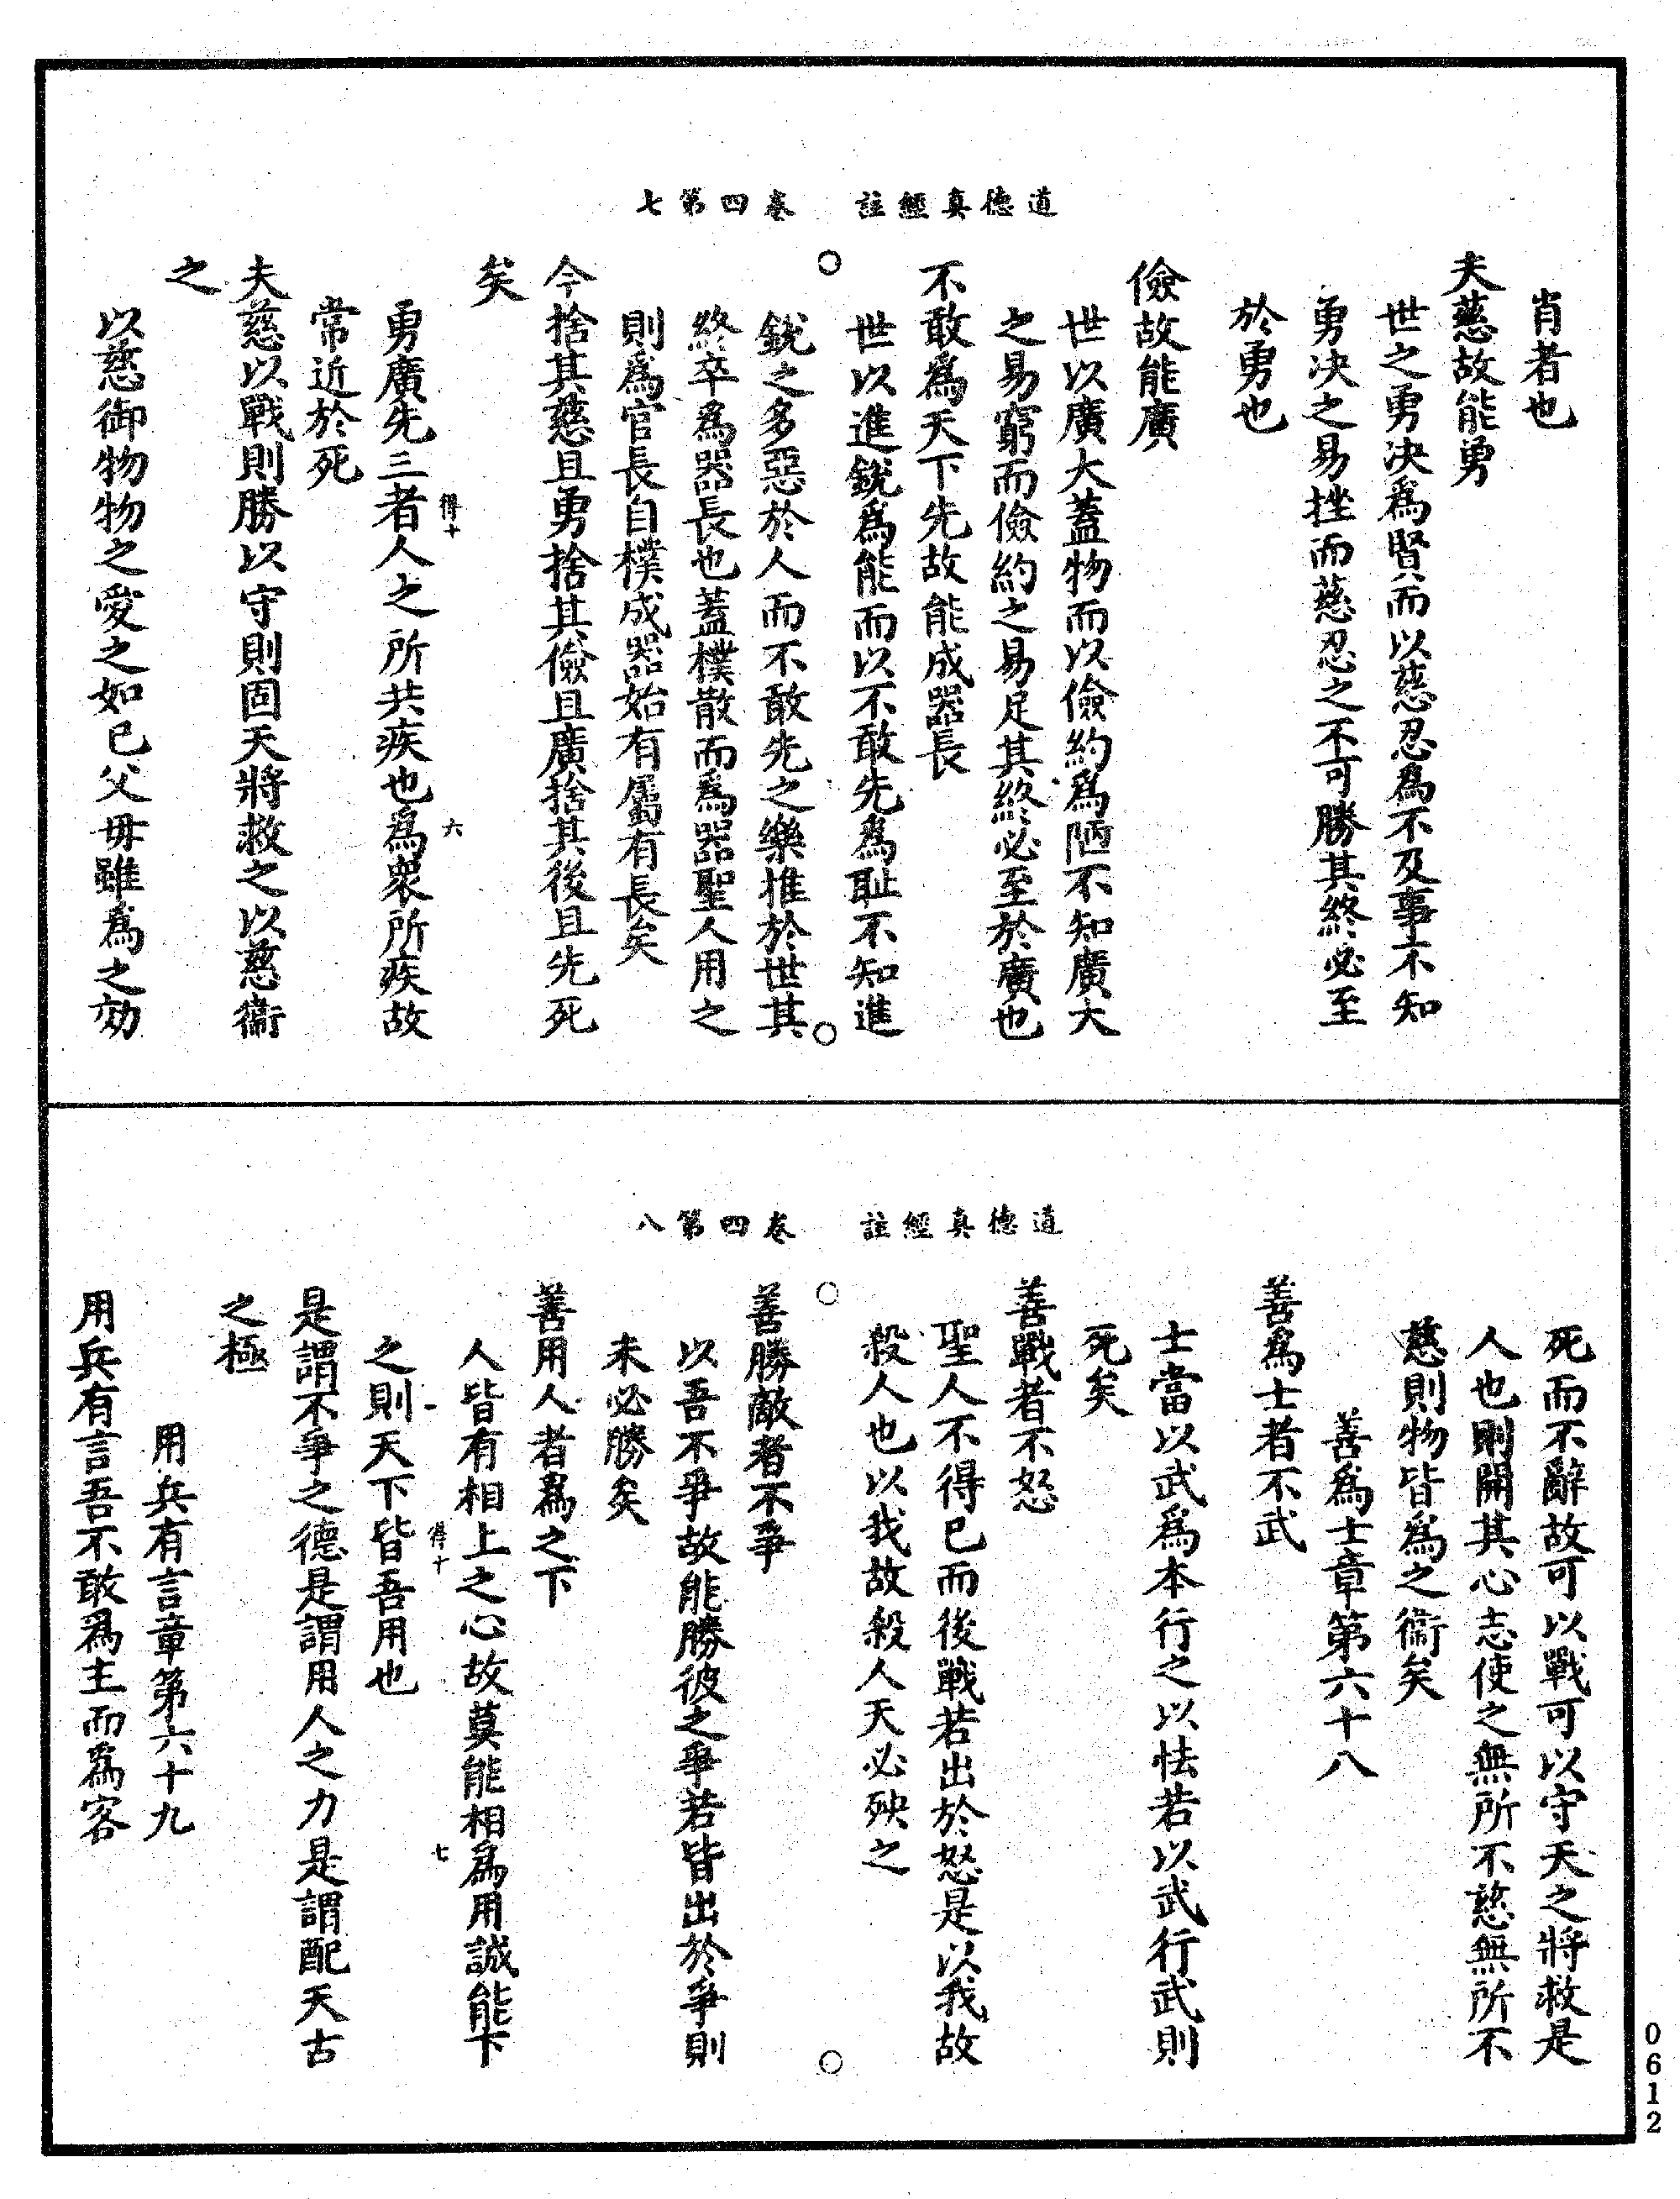 道德真經註　卷四第七
肖者也
夫慈故能勇
世之勇决爲賢而以慈忍爲不及事不知
勇决之易挫而慈忍之不可勝其終必至
於勇也
儉故能廣
世以廣大蓋物而以儉約爲陋不知廣大
之易窮而儉約之易足其終必至於廣也
不敢爲天下先故能成器長
世以進銳爲能而以不敢先爲耻不知進
銳之多惡於人而不敢先之樂推於世其
終卒爲器長也蓋樸散而爲器聖人用之
則爲官長自樸成器始有屬有長矣
今捨其慈且勇捨其儉且廣捨其後且先死
矣
得十　六
勇廣先三者人之所共疾也爲衆所疾故
常近於死
夫慈以戰則勝以守則固天將救之以慈衛
之
以慈御物物之愛之如己父毋雖爲之効
道德真經註　卷四第八
死而不辭故可以戰可以守天之將救是
人也則開其心志使之無所不慈無所不
慈則物皆爲之衛矣
善爲士章第六十八
善爲士者不武
士當以武爲本行之以怯若以武行武則
死矣
善戰者不怒
聖人不得已而後戰若出於怒是以我故
殺人也以我故殺人天必殃之
善勝敵者不爭
以吾不爭故能勝彼之爭若皆出於爭則
未必勝矣
善用人者爲之下
人皆有相上之心故莫能相爲用誠能下
得十　七
之則天下皆吾用也
是謂不爭之德是謂用人之力是謂配天古
之極
用兵有言章第六十九
用兵有言吾不敢爲主而爲客
0612